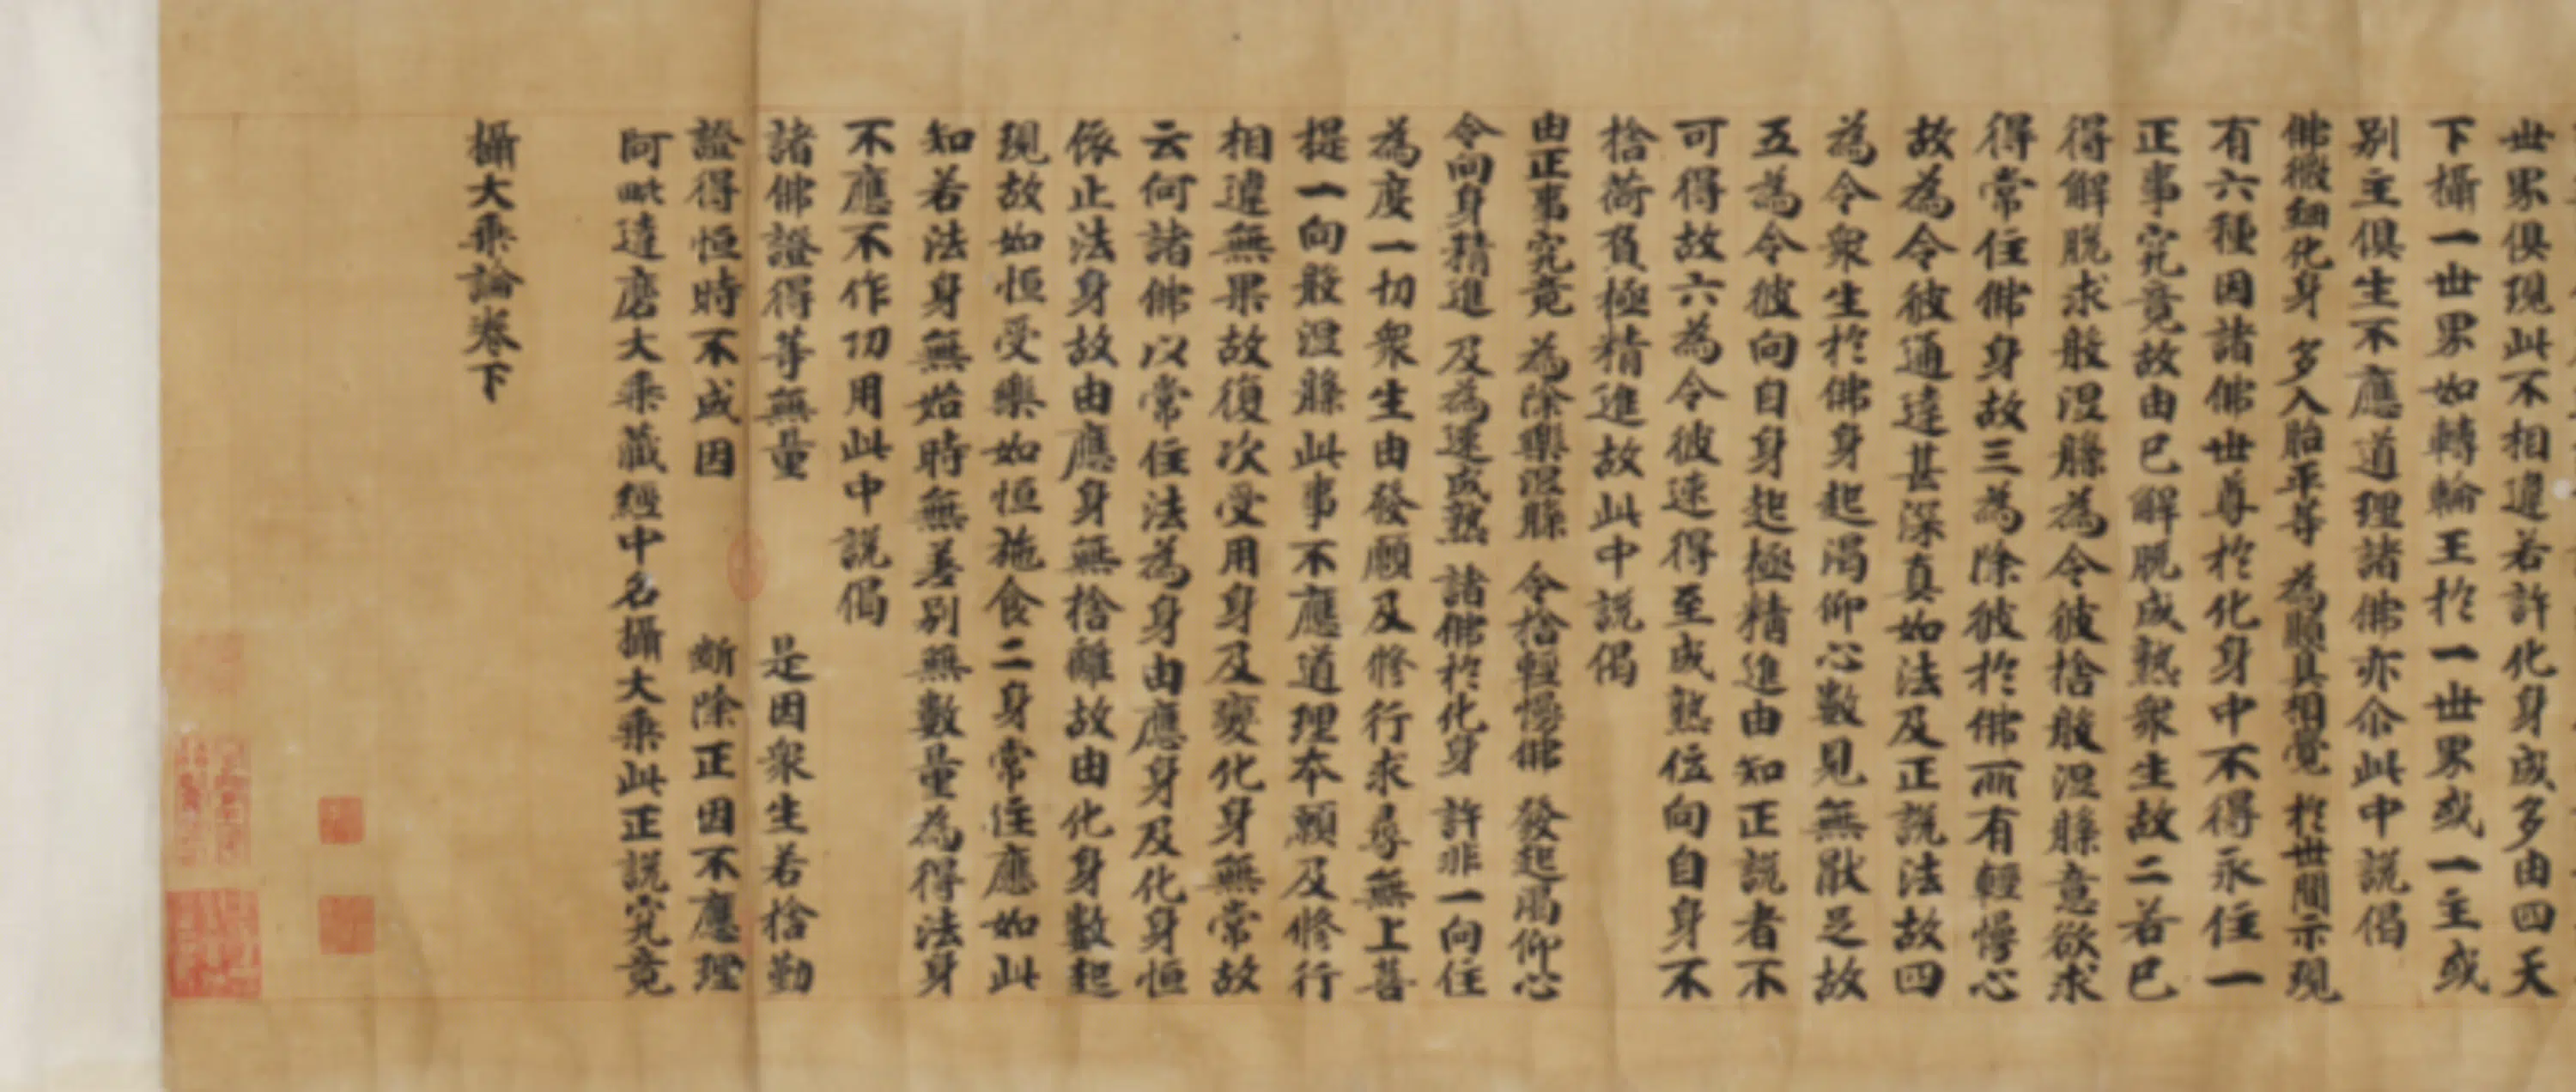 世界俱現此不相違若許化身或多由四天
下攝一世界如轉輪王於一世界或一主或
別主俱生不應道理諸佛亦尒此中說偈
佛微細化身 多入胎平等 為顯具相覺 於世間示現
有六種因諸佛世尊於化身中不得永住一
正事究竟故由已解脫成熟衆生故二若已
得解脫求般涅槃為令彼捨般涅槃意欲求
得常住佛身故三為除彼於佛所有輕慢心
故為令彼通達甚深真如法及正說法故四
為令衆生於佛身起渴仰心數見無猒足故
五為令彼向自身起極精進由知正說者不
可得故六為令彼速得至成熟位向自身不
捨荷負極精進故此中說偈
由正事究竟 為除樂涅槃 令捨輕慢佛 發起渴仰心
令向身精進 及為速成熟 諸佛於化身 許非一向住
為度一切衆生由發願及修行求尋無上菩
提一向般涅槃此事不應道理本願及修行
相違無果故復次受用身及變化身無常故
云何諸佛以常住法為身由應身及化身恒
依止法身故由應身無捨離故由化身數起
現故如恒受樂如恒施食二身常住應如此
知若法身無始時無差別無數量為得法身
不應不作功用此中說偈
諸佛證得等無量 是因衆生若捨勤
證得恒時不成因 斷除正因不應理
阿毗達磨大乘藏經中名攝大乘此正說究竟
攝大乘論卷下